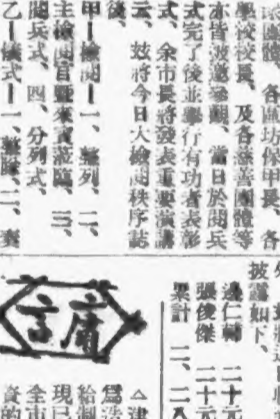 各區坊保甲長、各
學校校長、及各慈善團體等
亦皆被邀參觀、當日於閱兵
式完了後並舉行有功者表彰
式、余市長將發表重要演講
云、茲將今日大檢閱秩序誌
後、
甲—檢閱—一、整列、二、
主檢閱官暨來賓蒞臨、三、
閱兵式、四、分列式、
乙—儀式—一、整隊、二、奏
披露如下、
邊仁輔 二十元
張俊傑 二十元
累計 二、二八
庸言
△津
爲浩
給制
現已
全市
資的